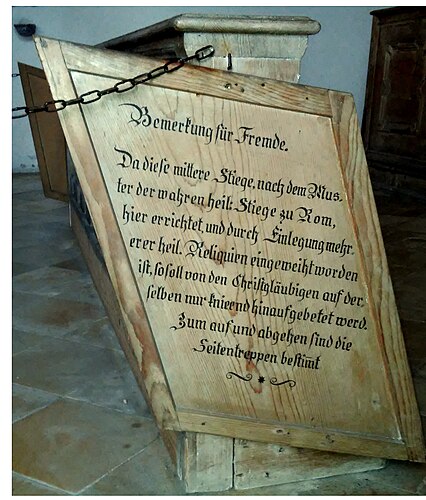 Bemerkung für Fremde.
Da diese mittere Stiege, nach dem Mus-
ter der wahren heil: Stiege zu Rom,
hier errichtet, und durch Einlegung mehr-
erer heil. Reliquien eingeweiht worden
ist, so soll von den Christgläubigen auf der
selben nur knieend hinaufgebetet werd.
Zum auf und abgehen sind die
Seitentreppen bestimt